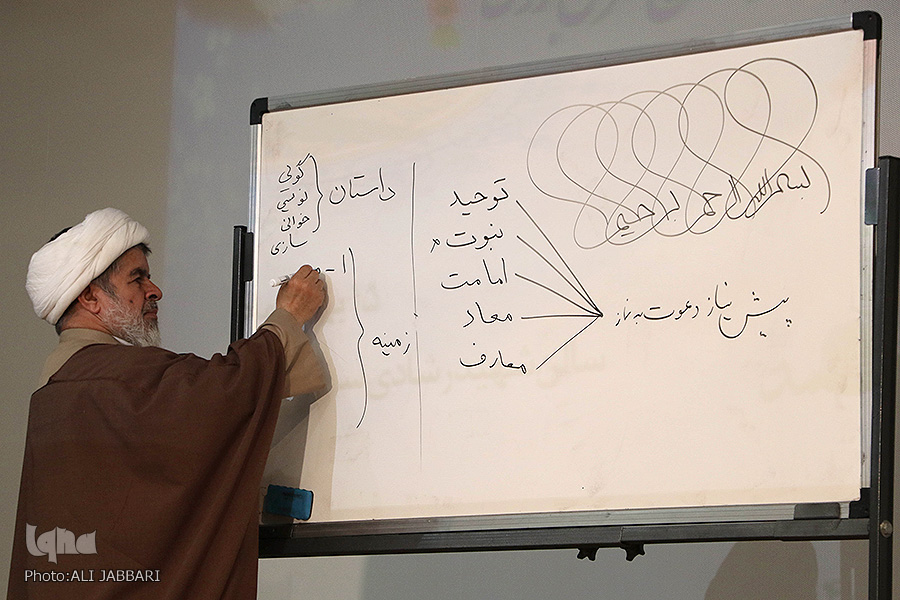 بسم الله الرحمن الرحیم
پیش نیاز دعوت به نماز
توحید
نبوت
امامت
معاد
معارف
داستان
گوئی
نویسی
خوانی
سازی
زمینه
۱ -
iqna
Photo:ALI JABBARI